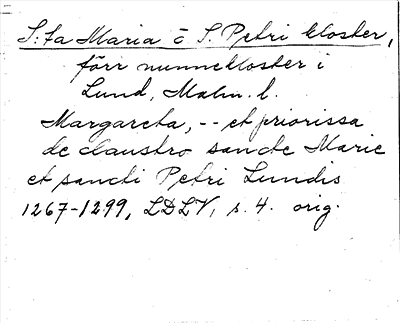 S:ta Maria o S. Petri kloster,
förr nunnekloster i
Lund, Malm. l.
Margareta, -- et priorissa
de claustro sancte Marie
et sancti Petri Lundis
1267-1299, LDLV, s. 4. orig.